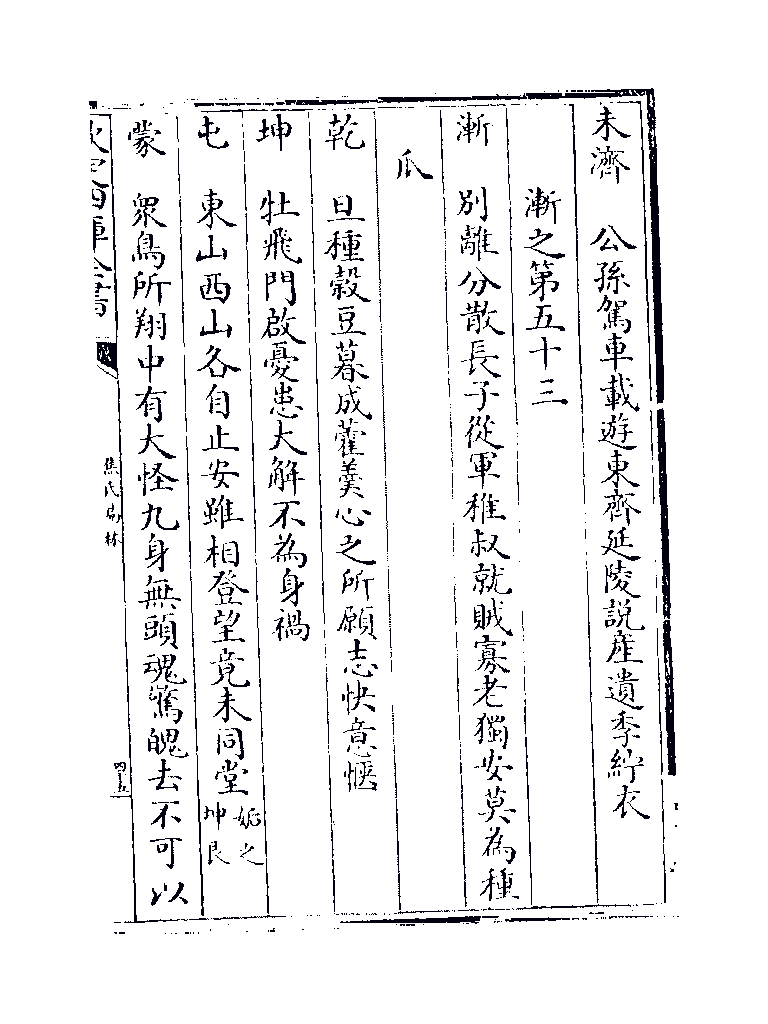 未濟　公孫駕車載遊東齊延陵説産遺季紵衣
漸之第五十三
漸　別離分散長子從軍稚叔就賊寡老獨安莫為種
瓜
乾　旦種穀豆暮成藿羹心之所願志快意愜
坤　牡飛門啟憂患大解不為身禍
屯　東山西山各自止安雖相登望竟未同堂姤之坤艮
蒙　衆鳥所翔中有大怪九身無頭魂驚魄去不可以
欽定四庫全書
焦氏易林
四五